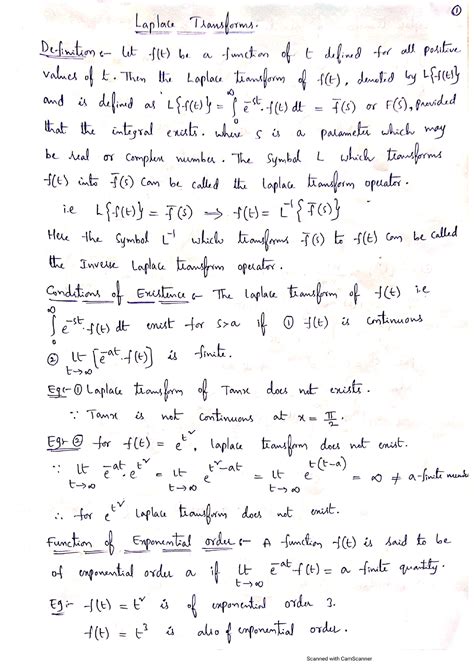 ①
Laplace Transforms.
Definition :- Let f(t) be a function of t defined for all positive
values of t. Then the Laplace transform of f(t), denoted by L{f(t)}
and is defined as L{f(t)} = ∫₀^∞ e^{-st}. f(t) dt = f̄(s) or F(s), Provided
that the integral exists. where s is a parameter which may
be real or complex number. The Symbol L which transforms
f(t) into f̄(s) Can be called the Laplace transform operator.
i.e L{f(t)} = f̄(s) ⟹ f(t) = L⁻¹{f̄(s)}
Here the Symbol L⁻¹ which transforms f̄(s) to f(t) Can be called
the Inverse Laplace transform operator.
Conditions of Existence :- The Laplace transform of f(t) i.e
∫₀^∞ e^{-st}. f(t) dt exist for s>a if ① f(t) is continuous
② lt_{t→∞} [e^{-at}. f(t)] is finite.
Eg:- ① Laplace transform of Tanx does not exists.
∵ Tanx is not continuous at x = π/2.
Eg:- ② for f(t) = e^{t²}, Laplace transform does not exist.
∵ lt_{t→∞} e^{-at}. e^{t²} = lt_{t→∞} e^{t²-at} = lt_{t→∞} e^{t(t-a)} = ∞ ≠ a finite
∴ for e^{t²} Laplace transform does not exist.
Function of Exponential order :- A function f(t) is said to be
of exponential order a if lt_{t→∞} e^{-at} f(t) = a finite quantity.
Eg:- f(t) = t² is of exponential order 3.
f(t) = t³ is also of exponential order.
Scanned with CamScanner